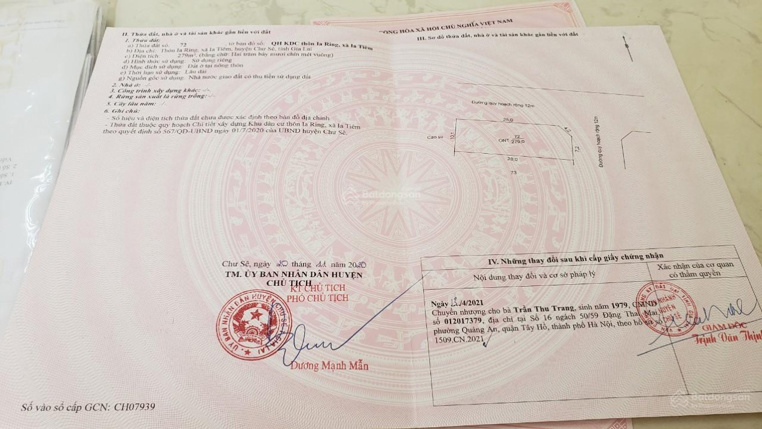 CỘNG HÒA XÃ HỘI CHỦ NGHĨA VIỆT NAM
II. Thửa đất, nhà ở và tài sản khác gắn liền với đất
1. Thửa đất:
a) Thửa đất số: 72 , tờ bản đồ số: QH KDC thôn Ia Ring, xã Ia Tiêm
b) Địa chỉ: Thôn Ia Ring, xã Ia Tiêm, huyện Chư Sê, tỉnh Gia Lai
c) Diện tích: m², (bằng chữ: Hai trăm bảy mươi mét vuông)
d) Hình thức sử dụng: Sử dụng riêng
đ) Mục đích sử dụng: Đất ở tại nông thôn
e) Thời hạn sử dụng: Lâu dài
g) Nguồn gốc sử dụng: Nhà nước giao đất có thu tiền sử dụng đất
2. Nhà ở: -/-
3. Công trình xây dựng khác: -/-
4. Rừng sản xuất là rừng trồng: -/-
5. Cây lâu năm: -/-
6. Ghi chú:
- Số hiệu và diện tích thửa đất chưa được xác định theo bản đồ địa chính;
- Thửa đất thuộc quy hoạch Chi tiết xây dựng Khu dân cư thôn Ia Ring, xã Ia Tiêm
theo quyết định số 567/QĐ-UBND ngày 01/7/2020 của UBND huyện Chư Sê.
III. Sơ đồ thửa đất, nhà ở và tài sản khác gắn liền với đất
Đường quy hoạch rộng 12m
72
73
Chư Sê, ngày 20 tháng 11 năm 2020
TM. ỦY BAN NHÂN DÂN HUYỆN
CHỦ TỊCH
KT. CHỦ TỊCH
PHÓ CHỦ TỊCH
Dương Mạnh Mẫn
Số vào sổ cấp GCN: CH07939
IV. Những thay đổi sau khi cấp giấy chứng nhận
Nội dung thay đổi và cơ sở pháp lý
Xác nhận của cơ quan
có thẩm quyền
Ngày /4/2021
Chuyển nhượng cho bà Trần Thu Trang, sinh năm 1979, CMND
số 012017379, địa chỉ tại Số 16 ngách 50/59 Đặng Thai Mai
phường Quảng An, quận Tây Hồ, thành phố Hà Nội, theo hồ sơ
1509.CN.2021
GIÁM ĐỐC
Trịnh Văn Thịnh
Batdongsan